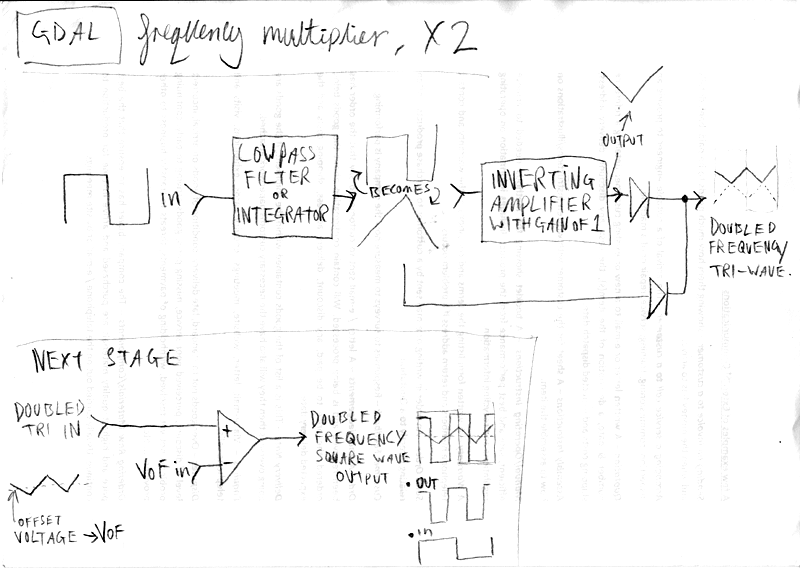 GDAL frequency multiplier, X2
in
LOWPASS
FILTER
OR
INTEGRATOR
BECOMES
INVERTING
AMPLIFIER
WITH GAIN OF 1
OUTPUT
DOUBLED
FREQUENCY
TRI-WAVE.
NEXT STAGE
DOUBLED
TRI IN
VOF in
+
-
DOUBLED
FREQUENCY
SQUARE WAVE
OUTPUT
• OUT
• in
OFFSET
VOLTAGE → VOF